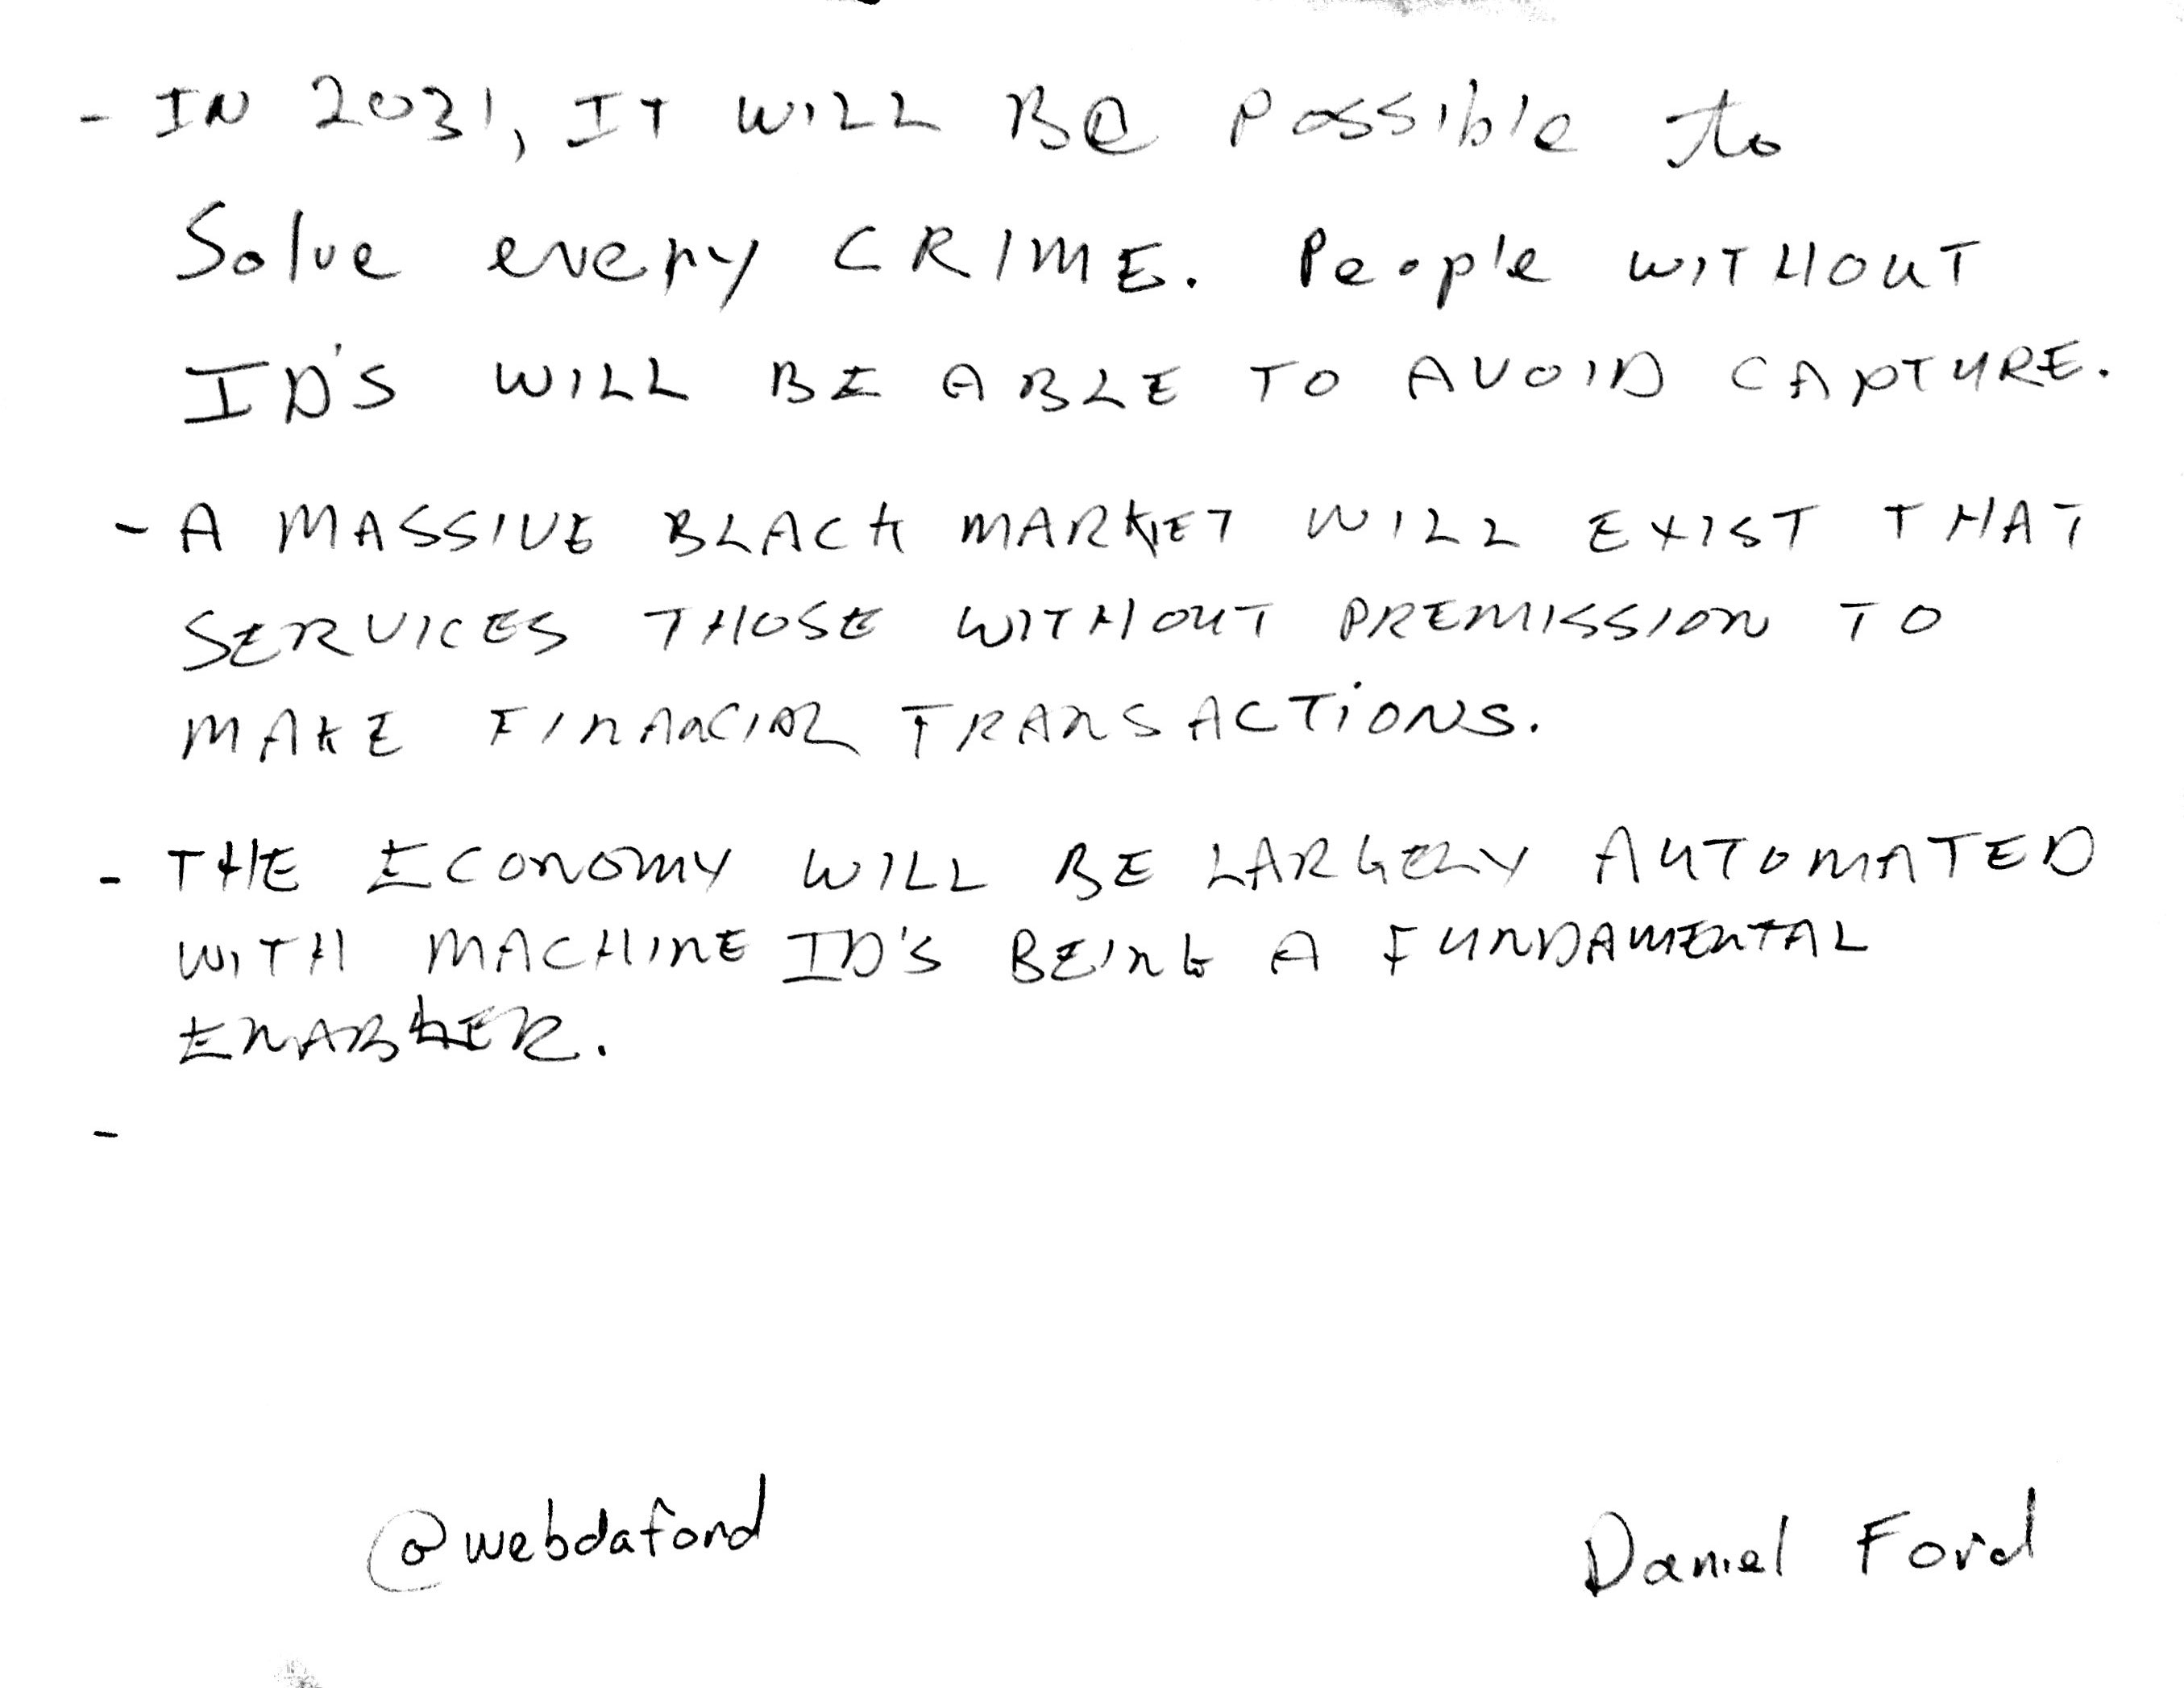 - IN 2031, IT WILL Be Possible to
Solve every CRIME. People WITHOUT
ID'S WILL BE ABLE TO AVOID CAPTURE.
- A MASSIVE BLACK MARKET WILL EXIST THAT
SERVICES THOSE WITHOUT PREMISSION TO
MAKE FINANCIAL TRANSACTIONS.
- THE ECONOMY WILL BE LARGELY AUTOMATED
WITH MACHINE ID'S BEING A FUNDAMENTAL
ENABLER.
-
@webdaford Daniel Ford